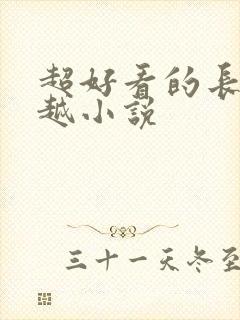 超好看的長
越小説
三十一天冬至